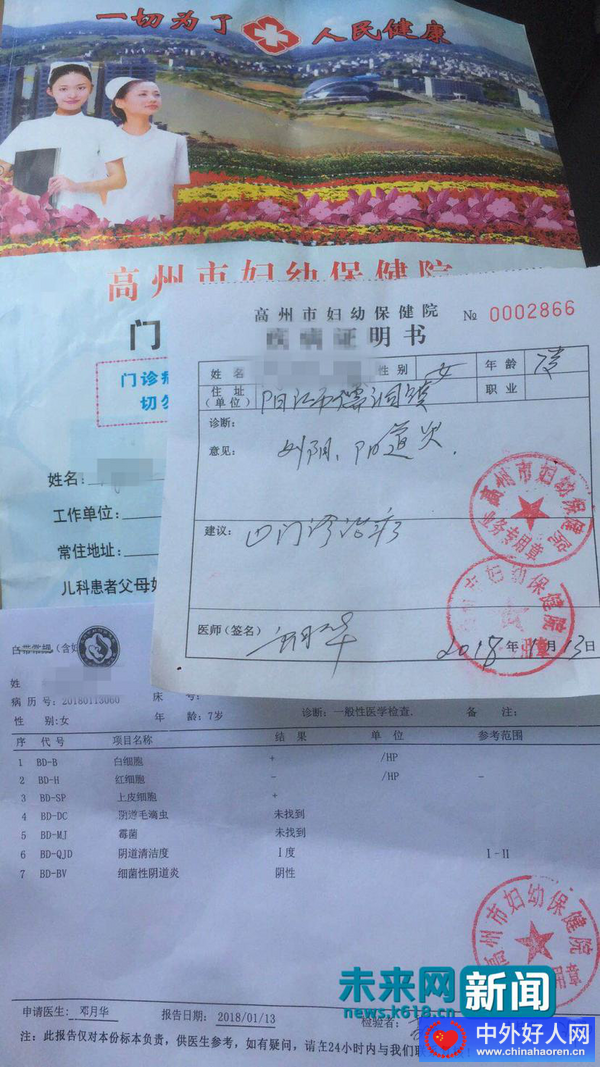 一切为了 人民健康
高州市妇幼保健院
门
门诊病
切勿
姓名：
工作单位：
常住地址：
儿科患者父母姓
高州市妇幼保健院 № 0002866
疾病证明书
姓名 性别 女 年龄
住址（单位） 阳江市 镇 职业
诊断：
意见： 外阴、阴道炎．
建议： 门诊治疗
高州市妇幼保健院
业务专用章
医师（签名）
2018年1月13日
高州市妇幼保健院
白带常规
姓
病 历 号：20180113060 床 号：
性 别:女 年 龄:7岁 诊断：一般性医学检查. 备 注：
序 代 号 项目名称 结 果 单 位 参考范围
1 BD-B 白细胞 + /HP
2 BD-H 红细胞 - /HP -
3 BD-SP 上皮细胞 +
4 BD-DC 阴道毛滴虫 未找到
5 BD-MJ 霉菌 未找到
6 BD-QJD 阴道清洁度 I度 I-II
7 BD-BV 细菌性阴道炎 阴性
高州市妇幼保健院
申请医生：邓月华 报告日期：2018/01/13 检验者：
注：此报告仅对本份标本负责，供医生参考，如有疑问，请在24小时内与我们联
未来网 新闻
news.k618.cn
中外好人网
www.chinahaoren.cn